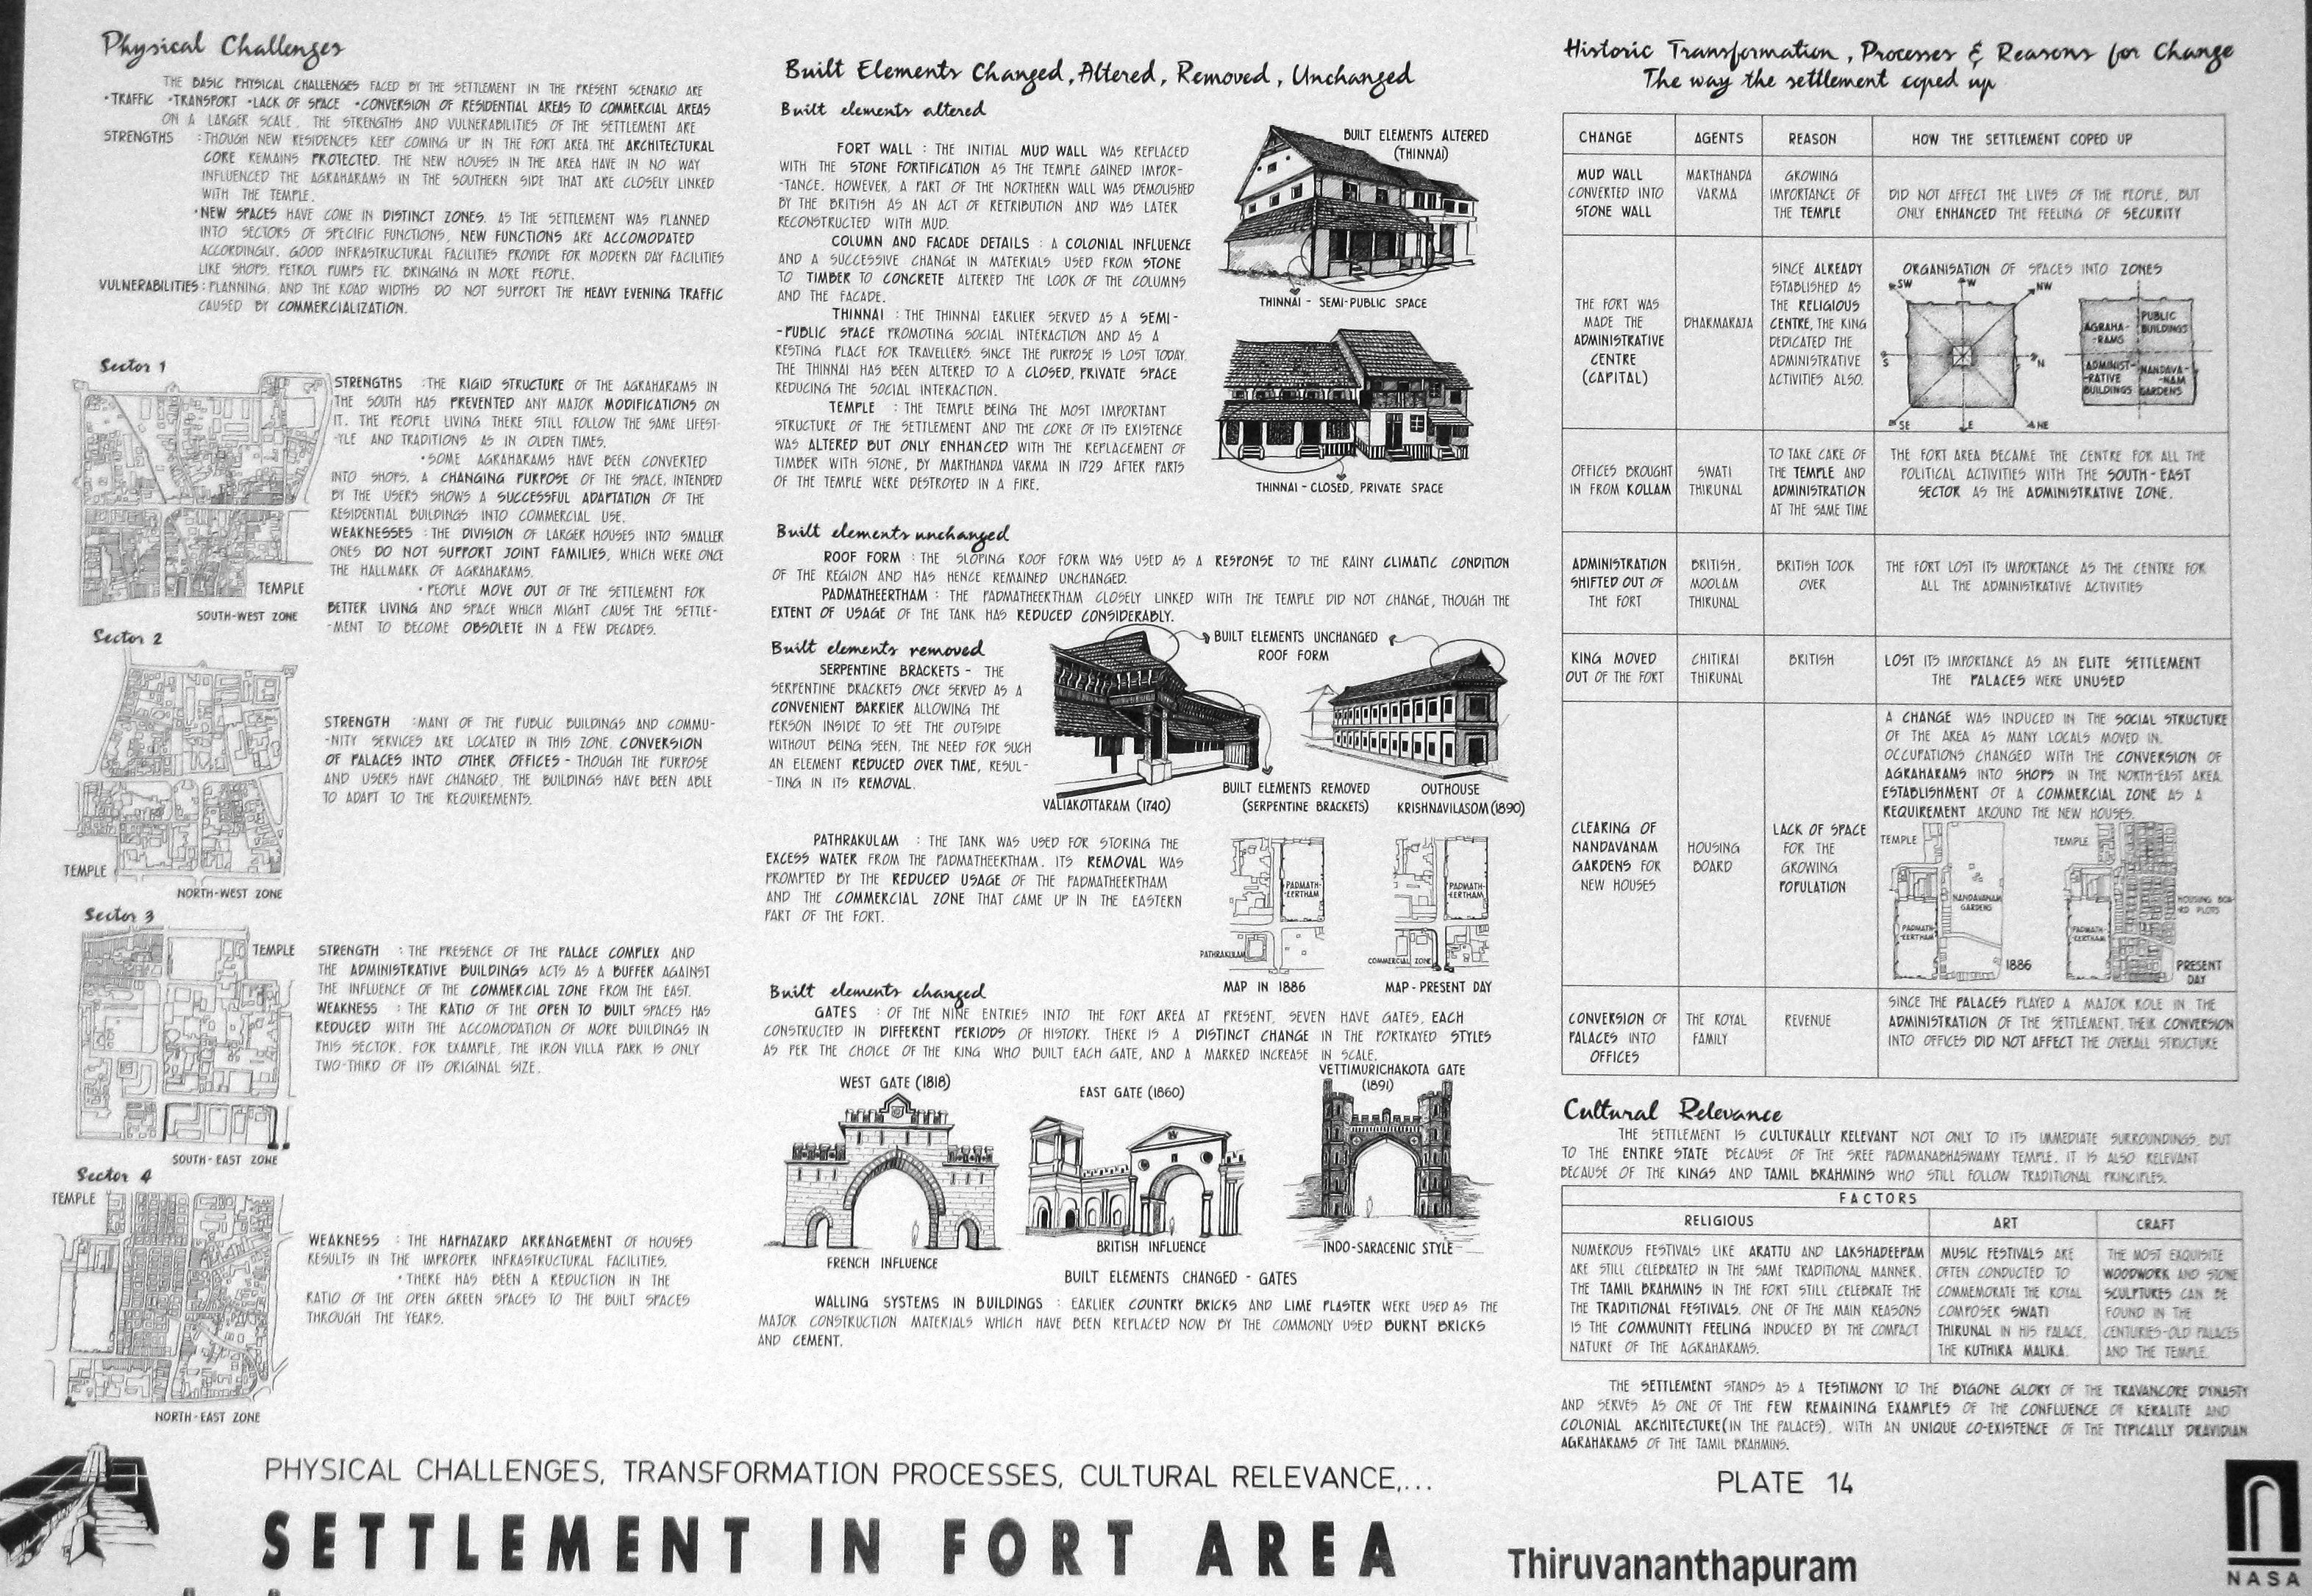 Physical Challenges
THE BASIC PHYSICAL CHALLENGES FACED BY THE SETTLEMENT IN THE PRESENT SCENARIO ARE
•TRAFFIC •TRANSPORT •LACK OF SPACE •CONVERSION OF RESIDENTIAL AREAS TO COMMERCIAL AREAS
ON A LARGER SCALE. THE STRENGTHS AND VULNERABILITIES OF THE SETTLEMENT ARE
STRENGTHS :THOUGH NEW RESIDENCES KEEP COMING UP IN THE FORT AREA THE ARCHITECTURAL
CORE REMAINS PROTECTED. THE NEW HOUSES IN THE AREA HAVE IN NO WAY
INFLUENCED THE AGRAHARAMS IN THE SOUTHERN SIDE THAT ARE CLOSELY LINKED
WITH THE TEMPLE.
•NEW SPACES HAVE COME IN DISTINCT ZONES. AS THE SETTLEMENT WAS PLANNED
INTO SECTORS OF SPECIFIC FUNCTIONS, NEW FUNCTIONS ARE ACCOMODATED
ACCORDINGLY. GOOD INFRASTRUCTURAL FACILITIES PROVIDE FOR MODERN DAY FACILITIES
LIKE SHOPS, PETROL PUMPS ETC BRINGING IN MORE PEOPLE.
VULNERABILITIES : PLANNING, AND THE ROAD WIDTHS DO NOT SUPPORT THE HEAVY EVENING TRAFFIC
CAUSED BY COMMERCIALIZATION.
Sector 1
TEMPLE
SOUTH-WEST ZONE
STRENGTHS :THE RIGID STRUCTURE OF THE AGRAHARAMS IN
THE SOUTH HAS PREVENTED ANY MAJOR MODIFICATIONS ON
IT. THE PEOPLE LIVING THERE STILL FOLLOW THE SAME LIFEST-
-YLE AND TRADITIONS AS IN OLDEN TIMES.
•SOME AGRAHARAMS HAVE BEEN CONVERTED
INTO SHOPS. A CHANGING PURPOSE OF THE SPACE, INTENDED
BY THE USERS SHOWS A SUCCESSFUL ADAPTATION OF THE
RESIDENTIAL BUILDINGS INTO COMMERCIAL USE.
WEAKNESSES :THE DIVISION OF LARGER HOUSES INTO SMALLER
ONES DO NOT SUPPORT JOINT FAMILIES, WHICH WERE ONCE
THE HALLMARK OF AGRAHARAMS.
•PEOPLE MOVE OUT OF THE SETTLEMENT FOR
BETTER LIVING AND SPACE WHICH MIGHT CAUSE THE SETTLE-
-MENT TO BECOME OBSOLETE IN A FEW DECADES.
Sector 2
TEMPLE
NORTH-WEST ZONE
STRENGTH :MANY OF THE PUBLIC BUILDINGS AND COMMU-
-NITY SERVICES ARE LOCATED IN THIS ZONE. CONVERSION
OF PALACES INTO OTHER OFFICES - THOUGH THE PURPOSE
AND USERS HAVE CHANGED, THE BUILDINGS HAVE BEEN ABLE
TO ADAPT TO THE REQUIREMENTS.
Sector 3
TEMPLE
SOUTH-EAST ZONE
STRENGTH : THE PRESENCE OF THE PALACE COMPLEX AND
THE ADMINISTRATIVE BUILDINGS ACTS AS A BUFFER AGAINST
THE INFLUENCE OF THE COMMERCIAL ZONE FROM THE EAST.
WEAKNESS : THE RATIO OF THE OPEN TO BUILT SPACES HAS
REDUCED WITH THE ACCOMODATION OF MORE BUILDINGS IN
THIS SECTOR. FOR EXAMPLE, THE IRON VILLA PARK IS ONLY
TWO-THIRD OF ITS ORIGINAL SIZE.
Sector 4
TEMPLE
NORTH-EAST ZONE
WEAKNESS : THE HAPHAZARD ARRANGEMENT OF HOUSES
RESULTS IN THE IMPROPER INFRASTRUCTURAL FACILITIES.
•THERE HAS BEEN A REDUCTION IN THE
RATIO OF THE OPEN GREEN SPACES TO THE BUILT SPACES
THROUGH THE YEARS.
Built Elements Changed, Altered, Removed, Unchanged
Built elements altered
FORT WALL : THE INITIAL MUD WALL WAS REPLACED
WITH THE STONE FORTIFICATION AS THE TEMPLE GAINED IMPOR-
-TANCE. HOWEVER, A PART OF THE NORTHERN WALL WAS DEMOLISHED
BY THE BRITISH AS AN ACT OF RETRIBUTION AND WAS LATER
RECONSTRUCTED WITH MUD.
COLUMN AND FACADE DETAILS : A COLONIAL INFLUENCE
AND A SUCCESSIVE CHANGE IN MATERIALS USED FROM STONE
TO TIMBER TO CONCRETE ALTERED THE LOOK OF THE COLUMNS
AND THE FACADE.
THINNAI : THE THINNAI EARLIER SERVED AS A SEMI-
-PUBLIC SPACE PROMOTING SOCIAL INTERACTION AND AS A
RESTING PLACE FOR TRAVELLERS. SINCE THE PURPOSE IS LOST TODAY,
THE THINNAI HAS BEEN ALTERED TO A CLOSED, PRIVATE SPACE
REDUCING THE SOCIAL INTERACTION.
TEMPLE : THE TEMPLE BEING THE MOST IMPORTANT
STRUCTURE OF THE SETTLEMENT AND THE CORE OF ITS EXISTENCE
WAS ALTERED BUT ONLY ENHANCED WITH THE REPLACEMENT OF
TIMBER WITH STONE, BY MARTHANDA VARMA IN 1729 AFTER PARTS
OF THE TEMPLE WERE DESTROYED IN A FIRE.
BUILT ELEMENTS ALTERED
(THINNAI)
THINNAI - SEMI-PUBLIC SPACE
THINNAI - CLOSED, PRIVATE SPACE
Built elements unchanged
ROOF FORM : THE SLOPING ROOF FORM WAS USED AS A RESPONSE TO THE RAINY CLIMATIC CONDITION
OF THE REGION AND HAS HENCE REMAINED UNCHANGED.
PADMATHEERTHAM : THE PADMATHEERTHAM CLOSELY LINKED WITH THE TEMPLE DID NOT CHANGE, THOUGH THE
EXTENT OF USAGE OF THE TANK HAS REDUCED CONSIDERABLY.
Built elements removed
SERPENTINE BRACKETS - THE
SERPENTINE BRACKETS ONCE SERVED AS A
CONVENIENT BARRIER ALLOWING THE
PERSON INSIDE TO SEE THE OUTSIDE
WITHOUT BEING SEEN. THE NEED FOR SUCH
AN ELEMENT REDUCED OVER TIME, RESUL-
-TING IN ITS REMOVAL.
BUILT ELEMENTS UNCHANGED
ROOF FORM
VALIAKOTTARAM (1740)
BUILT ELEMENTS REMOVED
(SERPENTINE BRACKETS)
OUTHOUSE
KRISHNAVILASOM (1890)
PATHRAKULAM : THE TANK WAS USED FOR STORING THE
EXCESS WATER FROM THE PADMATHEERTHAM. ITS REMOVAL WAS
PROMPTED BY THE REDUCED USAGE OF THE PADMATHEERTHAM
AND THE COMMERCIAL ZONE THAT CAME UP IN THE EASTERN
PART OF THE FORT.
PADMATH-
-EERTHAM
PATHRAKULAM
MAP IN 1886
PADMATH-
-EERTHAM
COMMERCIAL ZONE
MAP - PRESENT DAY
Built elements changed
GATES : OF THE NINE ENTRIES INTO THE FORT AREA AT PRESENT, SEVEN HAVE GATES, EACH
CONSTRUCTED IN DIFFERENT PERIODS OF HISTORY. THERE IS A DISTINCT CHANGE IN THE PORTRAYED STYLES
AS PER THE CHOICE OF THE KING WHO BUILT EACH GATE, AND A MARKED INCREASE IN SCALE.
WEST GATE (1818)
EAST GATE (1860)
VETTIMURICHAKOTA GATE
(1891)
FRENCH INFLUENCE
BRITISH INFLUENCE
INDO-SARACENIC STYLE
BUILT ELEMENTS CHANGED - GATES
WALLING SYSTEMS IN BUILDINGS : EARLIER COUNTRY BRICKS AND LIME PLASTER WERE USED AS THE
MAJOR CONSTRUCTION MATERIALS WHICH HAVE BEEN REPLACED NOW BY THE COMMONLY USED BURNT BRICKS
AND CEMENT.
Historic Transformation, Processes & Reasons for Change
The way the settlement coped up
CHANGE AGENTS REASON HOW THE SETTLEMENT COPED UP
MUD WALL
CONVERTED INTO
STONE WALL
MARTHANDA
VARMA
GROWING
IMPORTANCE OF
THE TEMPLE
DID NOT AFFECT THE LIVES OF THE PEOPLE, BUT
ONLY ENHANCED THE FEELING OF SECURITY
THE FORT WAS
MADE THE
ADMINISTRATIVE
CENTRE
(CAPITAL)
DHARMARAJA
SINCE ALREADY
ESTABLISHED AS
THE RELIGIOUS
CENTRE, THE KING
DEDICATED THE
ADMINISTRATIVE
ACTIVITIES ALSO.
ORGANISATION OF SPACES INTO ZONES
SW W NW
S N
SE E NE
AGRAHA-
-RAMS
PUBLIC
BUILDINGS
ADMINIST-
-RATIVE
BUILDINGS
NANDAVA-
-NAM
GARDENS
OFFICES BROUGHT
IN FROM KOLLAM
SWATI
THIRUNAL
TO TAKE CARE OF
THE TEMPLE AND
ADMINISTRATION
AT THE SAME TIME
THE FORT AREA BECAME THE CENTRE FOR ALL THE
POLITICAL ACTIVITIES WITH THE SOUTH-EAST
SECTOR AS THE ADMINISTRATIVE ZONE.
ADMINISTRATION
SHIFTED OUT OF
THE FORT
BRITISH,
MOOLAM
THIRUNAL
BRITISH TOOK
OVER
THE FORT LOST ITS IMPORTANCE AS THE CENTRE FOR
ALL THE ADMINISTRATIVE ACTIVITIES
KING MOVED
OUT OF THE FORT
CHITIRAI
THIRUNAL
BRITISH
LOST ITS IMPORTANCE AS AN ELITE SETTLEMENT
THE PALACES WERE UNUSED
CLEARING OF
NANDAVANAM
GARDENS FOR
NEW HOUSES
HOUSING
BOARD
LACK OF SPACE
FOR THE
GROWING
POPULATION
A CHANGE WAS INDUCED IN THE SOCIAL STRUCTURE
OF THE AREA AS MANY LOCALS MOVED IN.
OCCUPATIONS CHANGED WITH THE CONVERSION OF
AGRAHARAMS INTO SHOPS IN THE NORTH-EAST AREA.
ESTABLISHMENT OF A COMMERCIAL ZONE AS A
REQUIREMENT AROUND THE NEW HOUSES.
TEMPLE
NANDAVANAM
GARDENS
PADMATH-
-EERTHAM
1886
TEMPLE
HOUSING BOA-
-RD PLOTS
PADMATH-
-EERTHAM
PRESENT
DAY
CONVERSION OF
PALACES INTO
OFFICES
THE ROYAL
FAMILY
REVENUE
SINCE THE PALACES PLAYED A MAJOR ROLE IN THE
ADMINISTRATION OF THE SETTLEMENT, THEIR CONVERSION
INTO OFFICES DID NOT AFFECT THE OVERALL STRUCTURE
Cultural Relevance
THE SETTLEMENT IS CULTURALLY RELEVANT NOT ONLY TO ITS IMMEDIATE SURROUNDINGS, BUT
TO THE ENTIRE STATE BECAUSE OF THE SREE PADMANABHASWAMY TEMPLE. IT IS ALSO RELEVANT
BECAUSE OF THE KINGS AND TAMIL BRAHMINS WHO STILL FOLLOW TRADITIONAL PRINCIPLES.
FACTORS
RELIGIOUS ART CRAFT
NUMEROUS FESTIVALS LIKE ARATTU AND LAKSHADEEPAM
ARE STILL CELEBRATED IN THE SAME TRADITIONAL MANNER.
THE TAMIL BRAHMINS IN THE FORT STILL CELEBRATE THE
THE TRADITIONAL FESTIVALS. ONE OF THE MAIN REASONS
IS THE COMMUNITY FEELING INDUCED BY THE COMPACT
NATURE OF THE AGRAHARAMS.
MUSIC FESTIVALS ARE
OFTEN CONDUCTED TO
COMMEMORATE THE ROYAL
COMPOSER SWATI
THIRUNAL IN HIS PALACE,
THE KUTHIRA MALIKA.
THE MOST EXQUISITE
WOODWORK AND STONE
SCULPTURES CAN BE
FOUND IN THE
CENTURIES-OLD PALACES
AND THE TEMPLE.
THE SETTLEMENT STANDS AS A TESTIMONY TO THE BYGONE GLORY OF THE TRAVANCORE DYNASTY
AND SERVES AS ONE OF THE FEW REMAINING EXAMPLES OF THE CONFLUENCE OF KERALITE AND
COLONIAL ARCHITECTURE(IN THE PALACES), WITH AN UNIQUE CO-EXISTENCE OF THE TYPICALLY DRAVIDIAN
AGRAHARAMS OF THE TAMIL BRAHMINS.
PHYSICAL CHALLENGES, TRANSFORMATION PROCESSES, CULTURAL RELEVANCE,...
PLATE 14
SETTLEMENT IN FORT AREA
Thiruvananthapuram
NASA